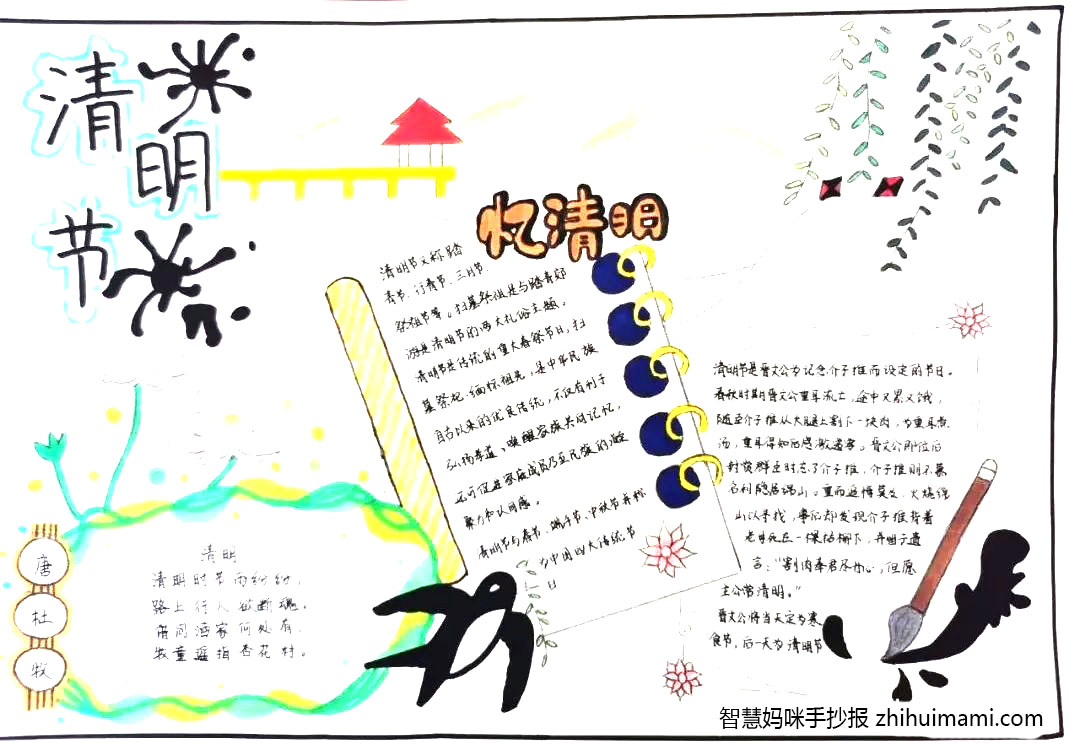 清明节
忆清明
清明节又称踏
青节、行青节、三月节、
祭祖节等。扫墓祭祖是与踏青郊
游是清明节的两大礼俗主题。
清明节是传统的重大春祭节日,扫
墓祭祀、缅怀祖先,是中华民族
自古以来的优良传统,不仅有利于
弘扬孝道、唤醒家族共同记忆,
还可促进家族成员乃至民族的凝
聚力和认同感。
清明节与春节、端午节、中秋节并称
为中国四大传统节
日
清明节是晋文公为记念介子推而设定的节日。
春秋时期晋文公重耳流亡,途中又累又饿,
随臣介子推从大腿上割下一块肉,为重耳煮
汤,重耳得知后感激
晋文公即位后
封赏群臣时忘了介子推,介子推则不慕
名利隐居绵山。重而
火烧绵
山以寻找,事后却发现介子推背着
老母死在一棵枯柳下,并留下遗
言:“割肉奉君尽丹心,但愿
主公常清明。”
晋文公将当天定为寒
食节,后一天为清明节
清明
清明时节雨纷纷,
路上行人欲断魂。
借问酒家何处有,
牧童遥指杏花村。
唐
杜
牧
智慧妈咪手抄报 zhihuimami.com